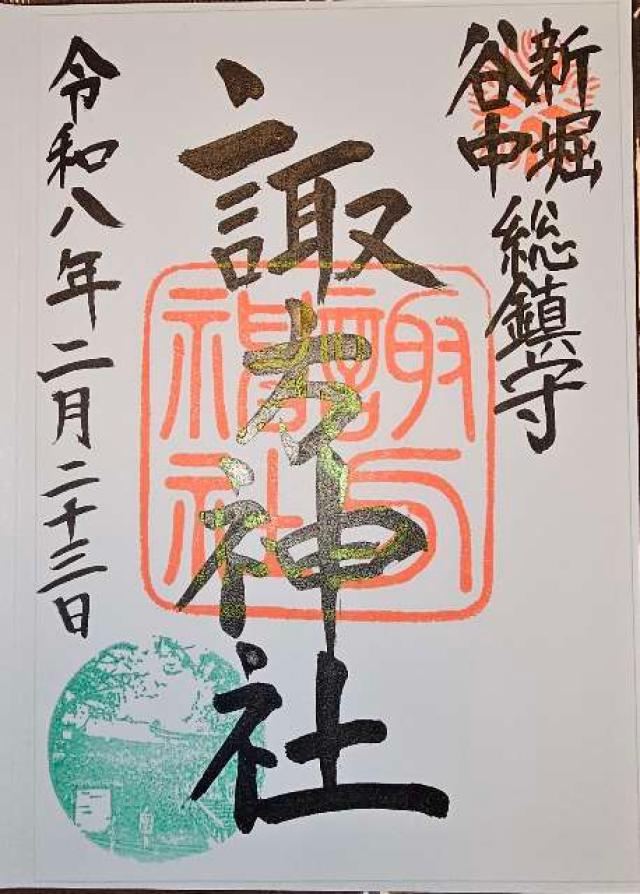 新堀
谷中
総鎮守
諏方神社
令和八年二月二十三日